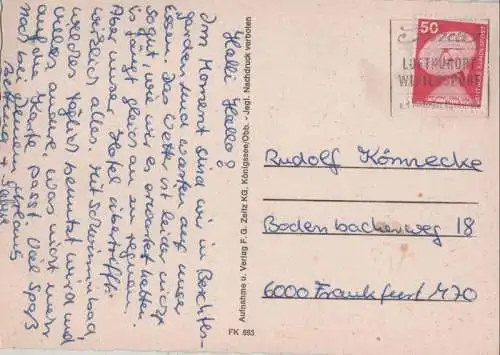 Hallo Hallo!
Im Moment sind wir in Berchtes-
garden und warten auf unser
Essen. Das Wetter ist leider nicht
so gut, wie wir es erwartet hatten.
Es fängt gleich an zu regnen.
Aber unser Hotel übertrifft
wirklich alles. Mit Schwimmbad
welches täglich benutzt wird und
vieles andere, was nicht mehr
auf die Karte passt. Viel Spaß
noch bei Deinem Urlaub
Aufnahme u. Verlag F. G. Zeitz KG, Königssee/Obb. - Jegl. Nachdruck verboten
FK 663
50
DEUTSCHE BUNDESPOST
LUFTKURORT
WINTERSPORT
Rudolf Könnecke
Bodenbacherweg 18
6000 Frankfurt M70